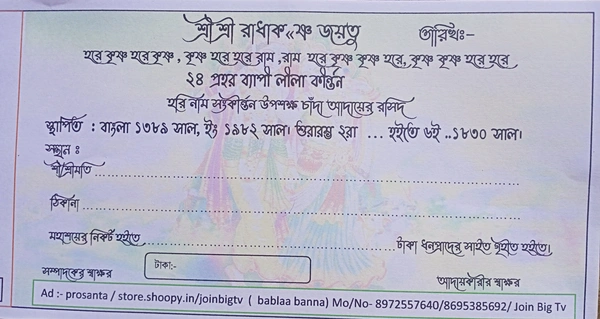 শ্রী শ্রী রাধাক«ষ্ণ জয়তু তারিখঃ-
হরে কৃষ্ণ হরে কৃষ্ণ , কৃষ্ণ হরে হরে রাম ,রাম হরে কৃষ্ণ কৃষ্ণ হরে, কৃষ্ণ কৃষ্ণ হরে হরে
২৪ প্রহর ব্যাপী লীলা কীর্ত্তন
হরি নাম সংকীর্ত্তন উপলক্ষ চাঁদা আদায়ের রসিদ
স্থাপিত : বাংলা ১৩৮৯ সাল, ইং ১৯৮২ সাল। শুভারম্ভ ২রা ... হইতে ৬ই ..১৮৩০ সাল।
স্থান :
শ্রী/শ্রীমতি
ঠিকানা
মহাশয়ের নিকট হইতে টাকা ধন্যবাদের সহিত গৃহীত হইল।
সম্পাদকের স্বাক্ষর টাকা:- আদায়কারীর স্বাক্ষর
Ad :- prosanta / store.shoopy.in/joinbigtv ( bablaa banna) Mo/No- 8972557640/8695385692/ Join Big Tv